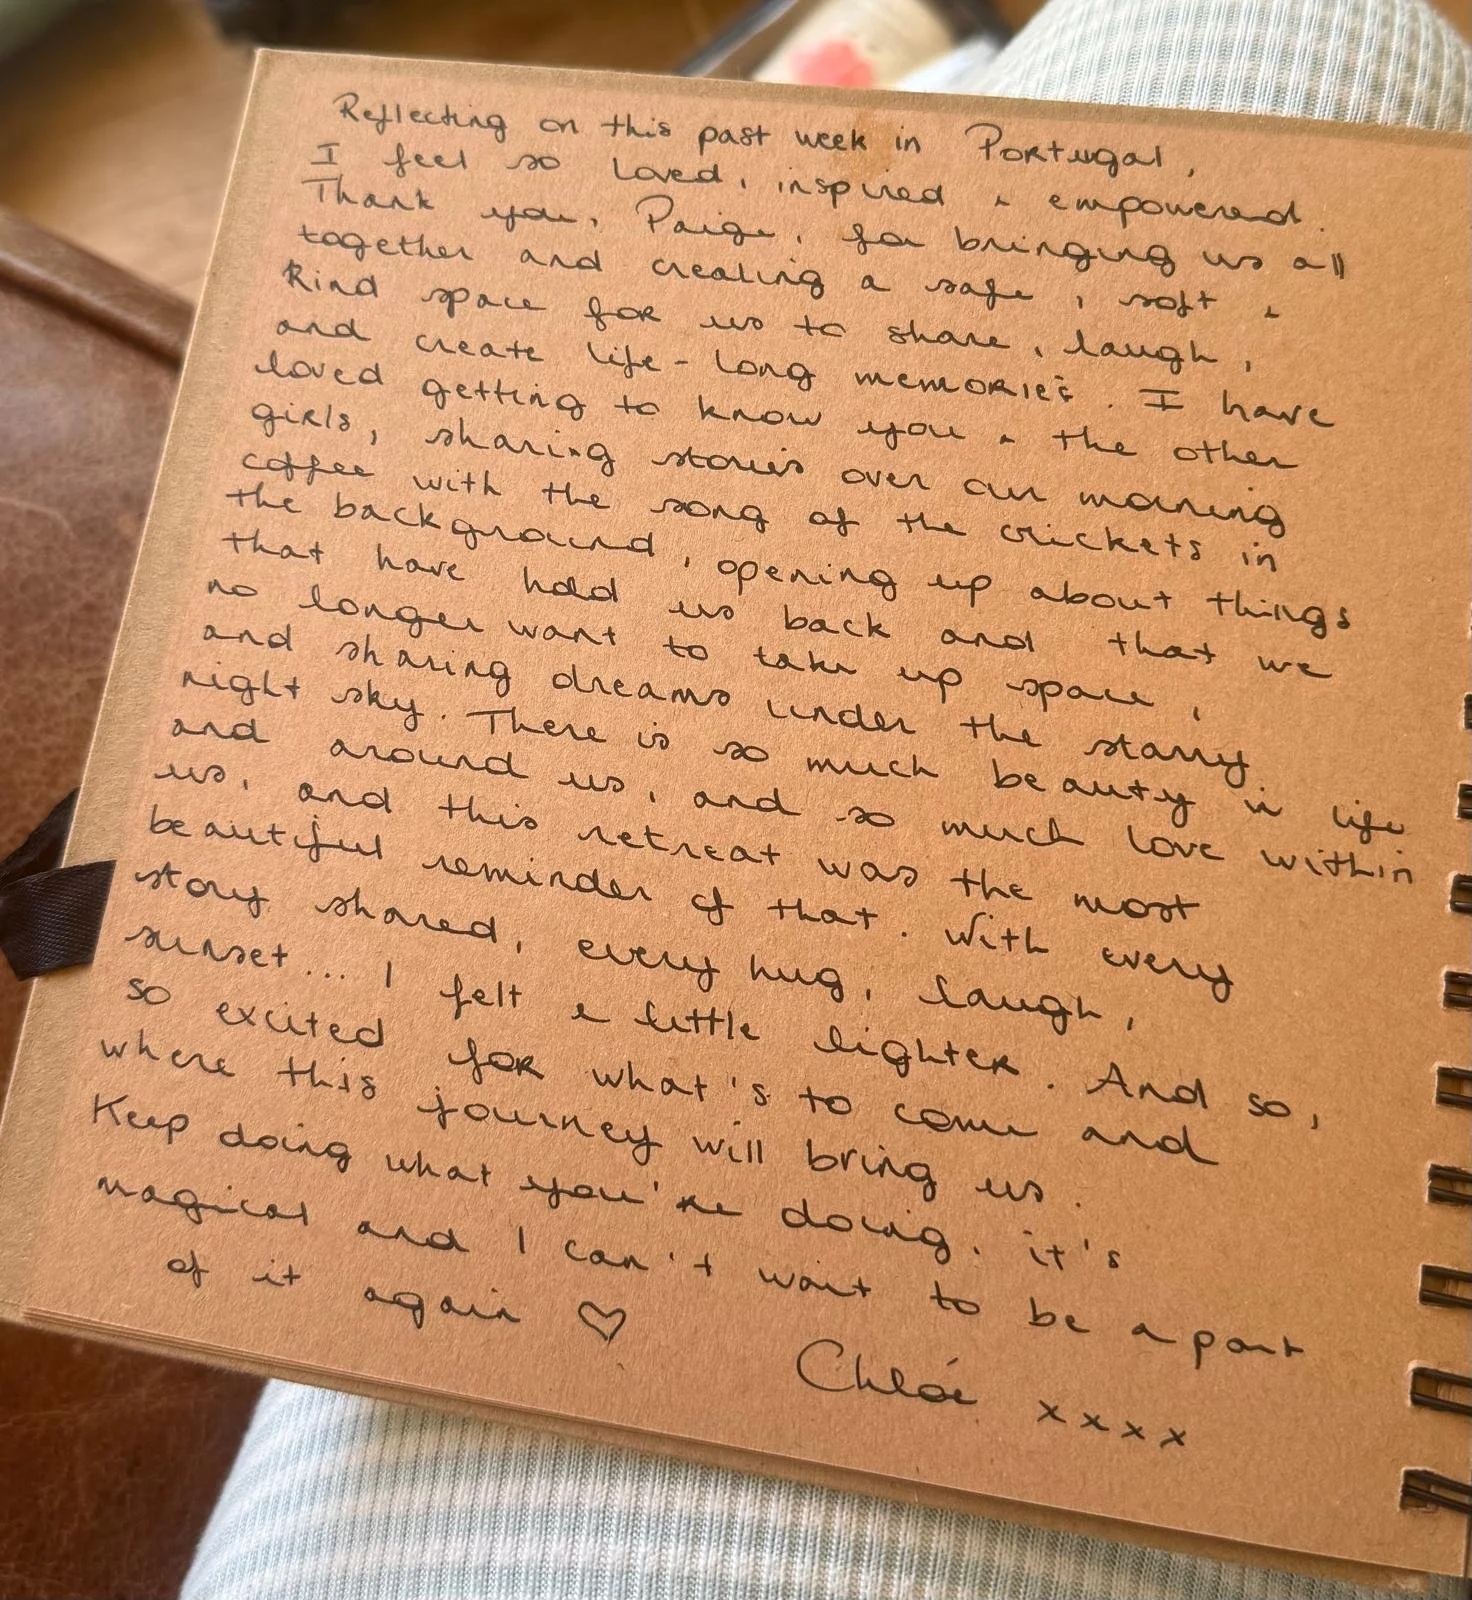 Reflecting on this past week in Portugal,
I feel so loved, inspired & empowered.
Thank you, Paige, for bringing us all
together and creating a safe, soft &
kind space for us to share, laugh,
and create life-long memories. I have
loved getting to know you & the other
girls, sharing stories over our morning
coffee with the song of the crickets in
the background, opening up about things
that have held us back and that we
no longer want to take up space,
and sharing dreams under the starry
night sky. There is so much beauty in life
and around us, and so much love within
us, and this retreat was the most
beautiful reminder of that. With every
story shared, every hug, laugh,
sunset... I felt a little lighter. And so,
so excited for what's to come and
where this journey will bring us.
Keep doing what you're doing, it's
magical and I can't wait to be a part
of it again ♡
Chloé xxxx